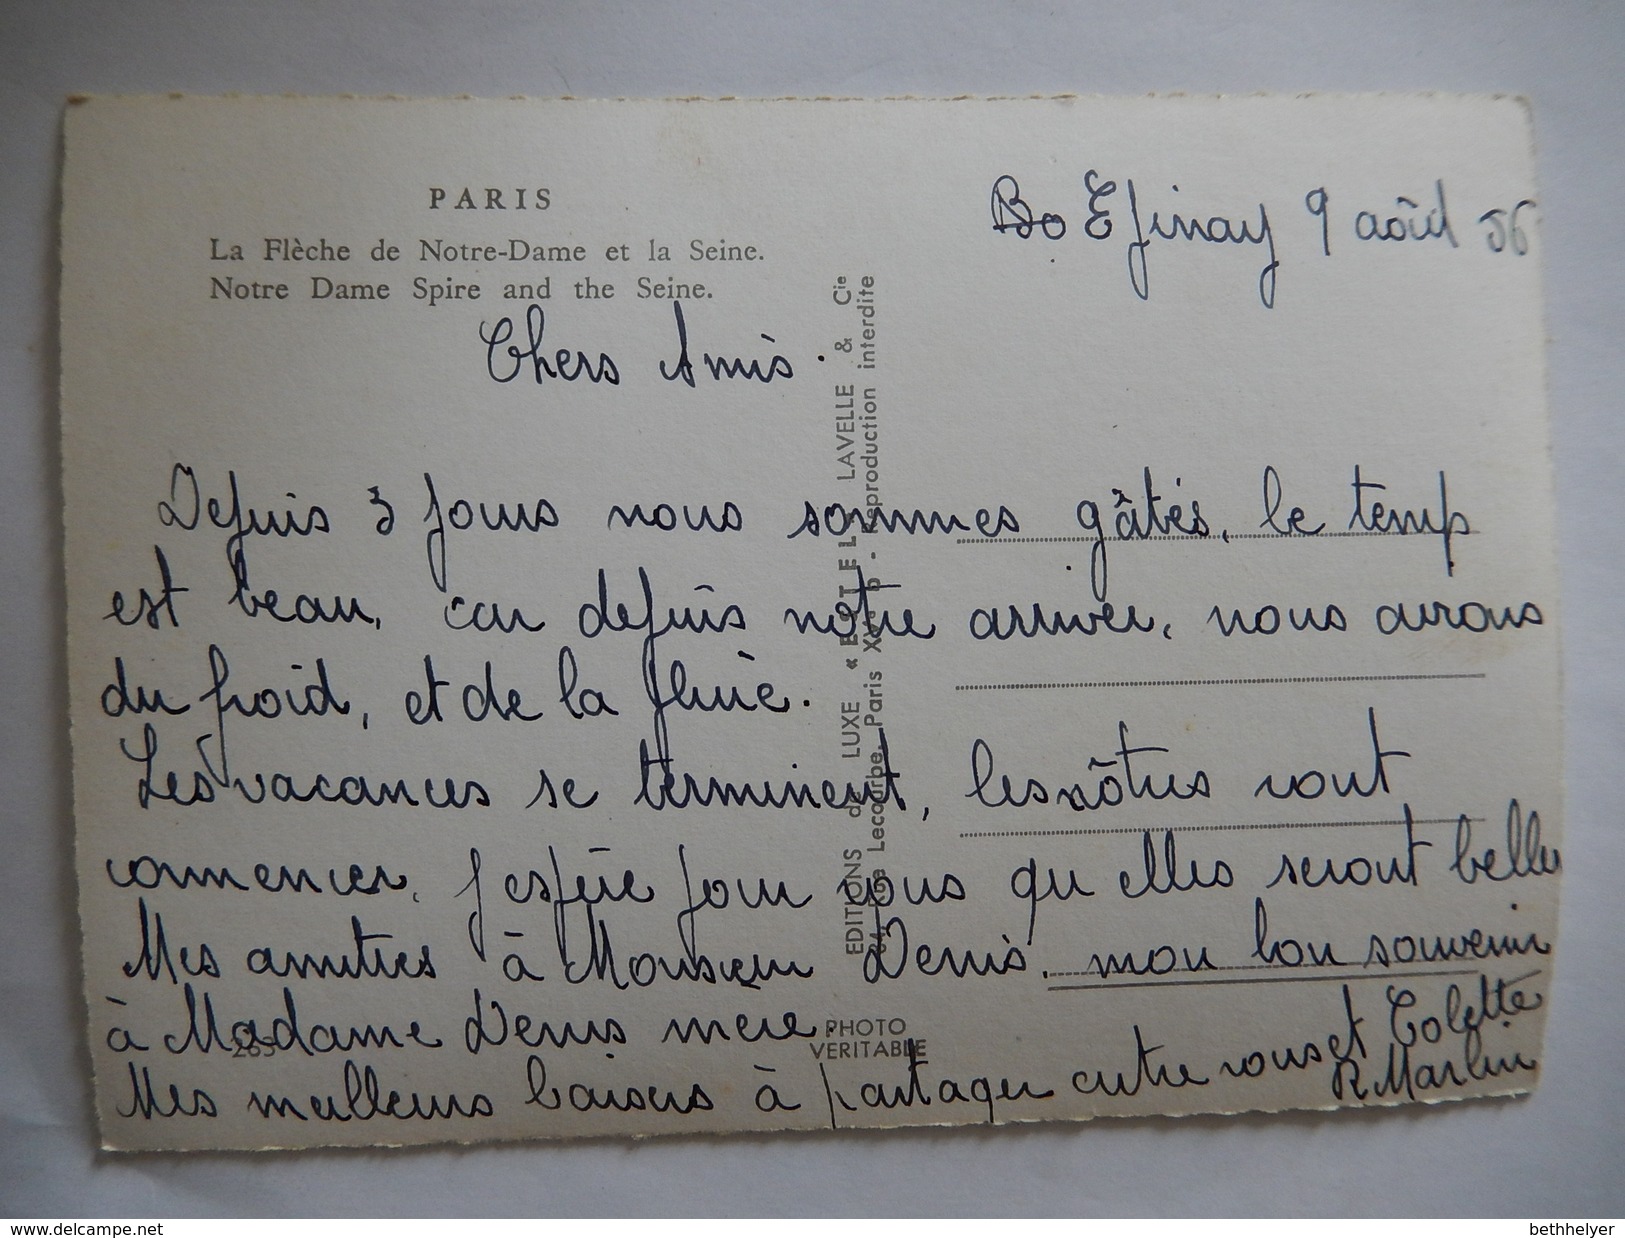 PARIS
La Flèche de Notre-Dame et la Seine.
Notre Dame Spire and the Seine.
Epinay 9 août 56
Chers Amis.
Depuis 3 jours nous sommes gâtés, le temps
est beau, car depuis notre arrivée, nous avons
du froid, et de la pluie.
Les vacances se terminent, les nôtres vont
commencer, j espère pour vous qu elles seront belles
Mes amitiés à Monsieur Denis, mon bon souvenir
à Madame Denis mère.
Mes meilleurs baisers à partager entre vous et Colette
R Marlin
EDITIONS de LUXE « LAVELLE & Cie
Rue Lecourbe, Paris XVe - Reproduction interdite
PHOTO
VERITABLE
265
www.delcampe.net
bethhelyer